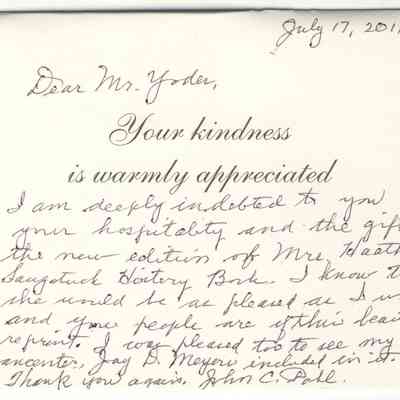 July 17, 201
Dear Mr. Yoder,
Your kindness
is warmly appreciated
I am deeply indebted to you
your hospitality and the gift
the new edition of Mrs. Heath
Saugatuck History Book. I know t
she would be as pleased as I w
and you people are of this beau
reprint. I was pleased too to see my
ancester, Jay D. Meyers included in it.
Thank you again. John C. Pahl.